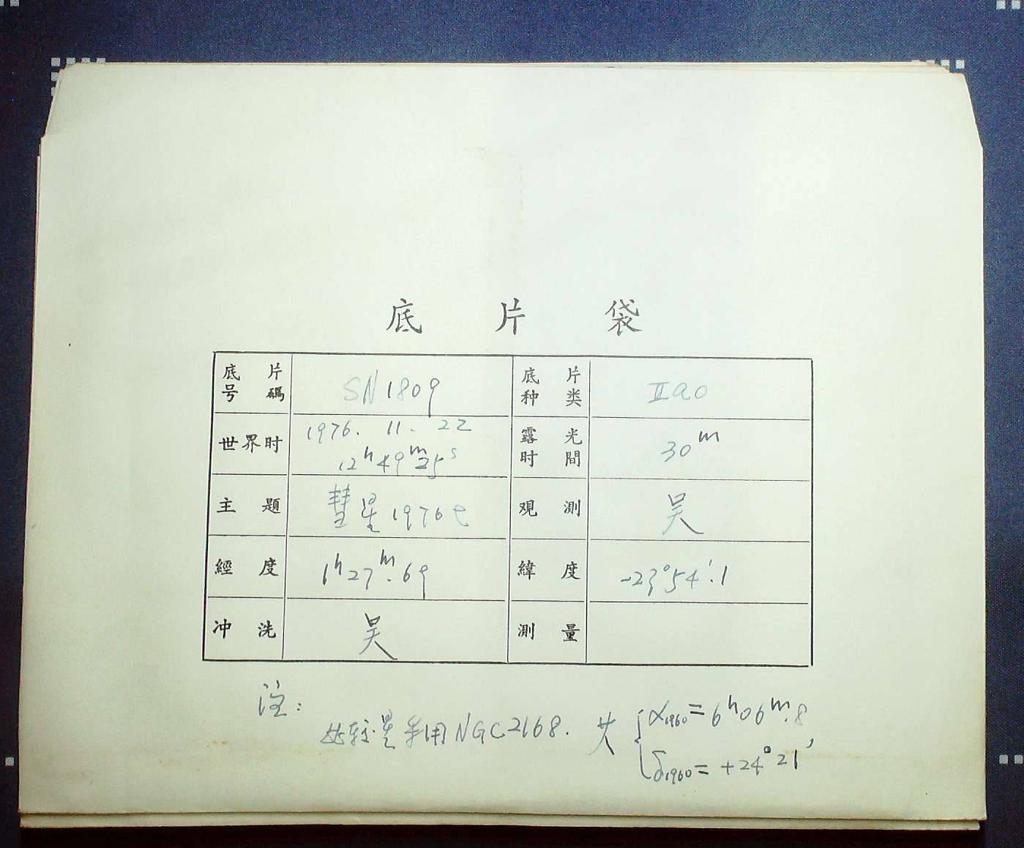 底片袋
底片号碼 SN1809 底片种类 IIaO
世界时 1976. 11. 22 露光时間 30ᵐ
12ʰ49ᵐ25ˢ
主題 彗星1976e 观測 吴
經度 1ʰ27ᵐ.69 緯度 -23°54′.1
冲洗 吴 測量
注:
比较星采用NGC2168. 其 { α₁₉₆₀=6ʰ06ᵐ.8
δ₁₉₆₀=+24°21′